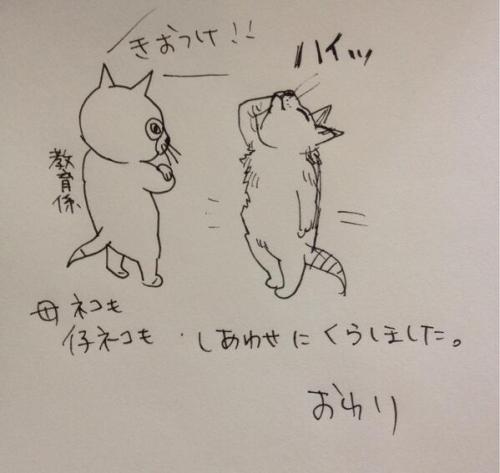 きおつけ!!
ハイッ
教育係
母ネコも
仔ネコも・しあわせにくらしました。
おわり